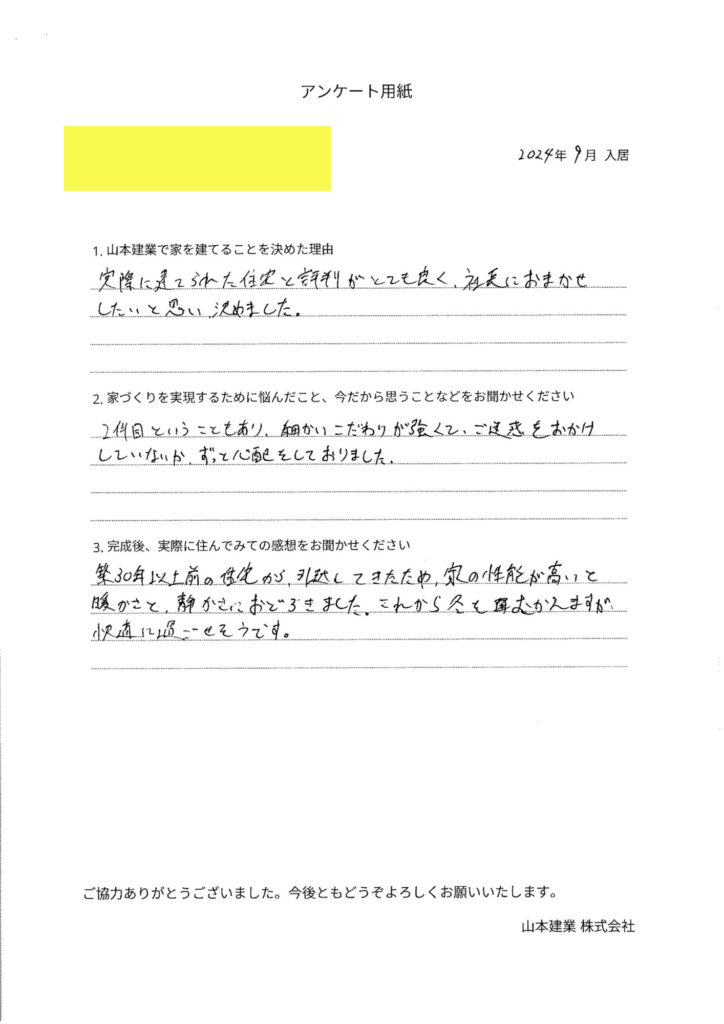 アンケート用紙
2024年 9月 入居
1. 山本建業で家を建てることを決めた理由
実際に建てられた住宅と評判がとても良く、社長におまかせ
したいと思い、決めました。
2. 家づくりを実現するために悩んだこと、今だから思うことなどをお聞かせください
2件目ということもあり、細かいこだわりが強くて、ご迷惑をおかけ
していないか、ずっと心配をしておりました。
3. 完成後、実際に住んでみての感想をお聞かせください
築30年以上前の住宅から、引越してきたため、家の性能が高いと
暖かさと、静かさにおどろきました。これから冬をむかえますが、
快適に過ごせそうです。
ご協力ありがとうございました。今後ともどうぞよろしくお願いいたします。
山本建業 株式会社